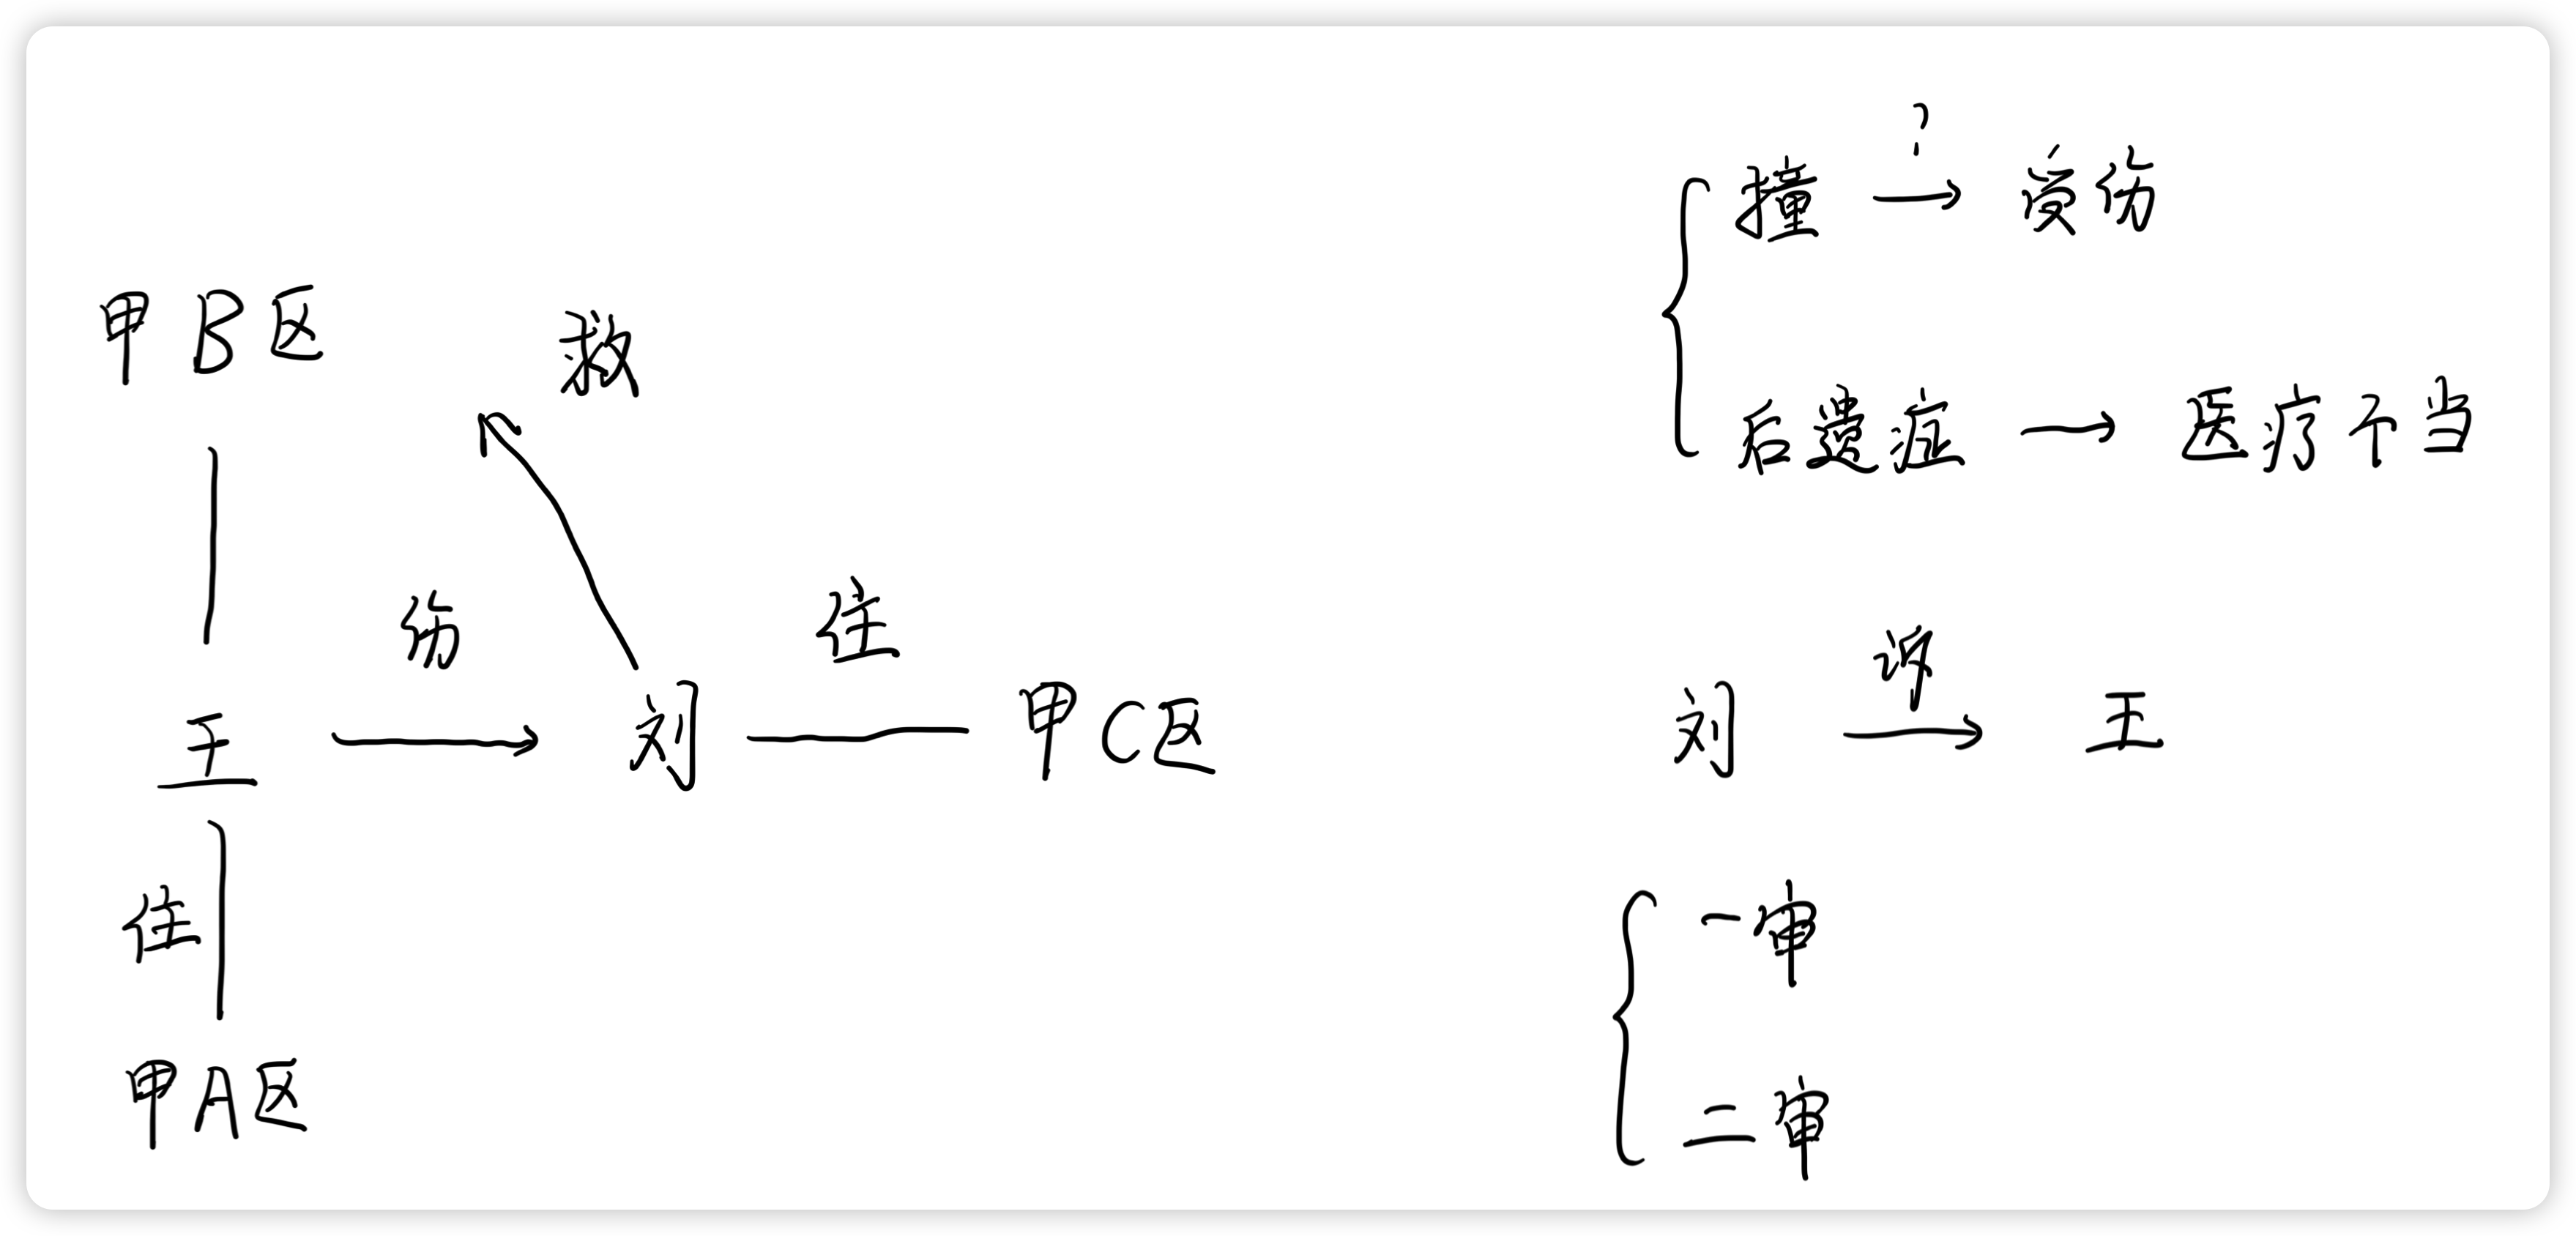 甲B区
救
伤
住
王
刘
甲C区
住
甲A区
?
撞 → 受伤
后遗症 → 医疗不当
诉
刘 → 王
一审
二审